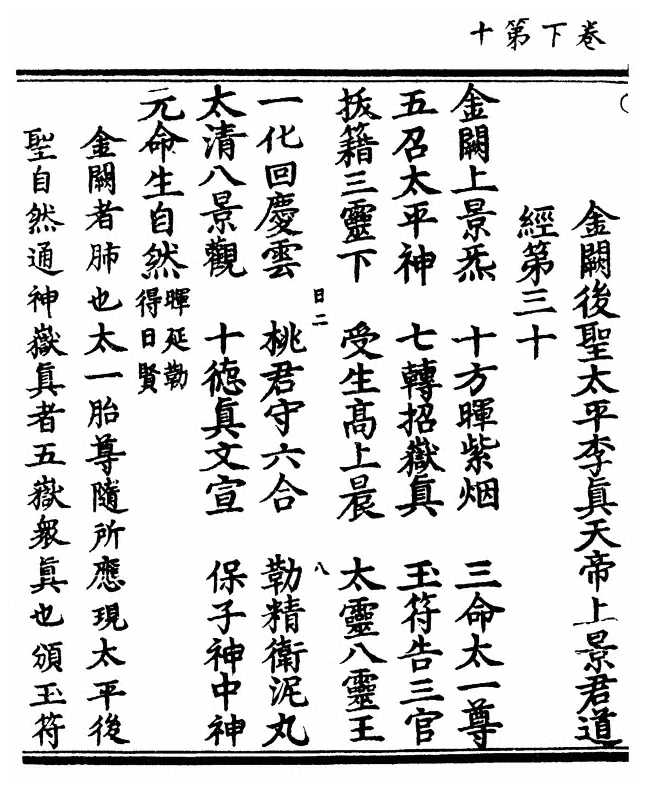 卷下第十
金闕後聖太平李眞天帝上景君道
經第三十
金闕上景炁　十方暉紫烟　三命太一尊
五召太平神　七轉招嶽眞　玉符告三官
拔籍三靈下　受生高上晨　太靈八靈王
日二　八
一化回慶雲　桃君守六合　勒精衛泥丸
太清八景觀　十德眞文宣　保子神中神
元命生自然
暉延勒
得日賢
金闕者肺也太一胎尊隨所應現太平後
聖自然通神嶽眞者五嶽衆眞也頒玉符